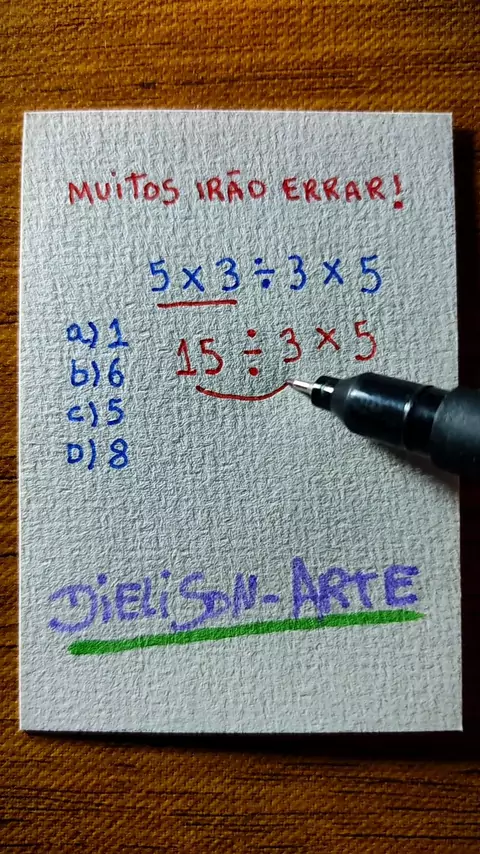 MUiTOS IRÃO ERRAR!
5 x 3 ÷ 3 x 5
a) 1
15 ÷ 3 x 5
b) 6
c) 5
D) 8
DiELiSON-ARTE